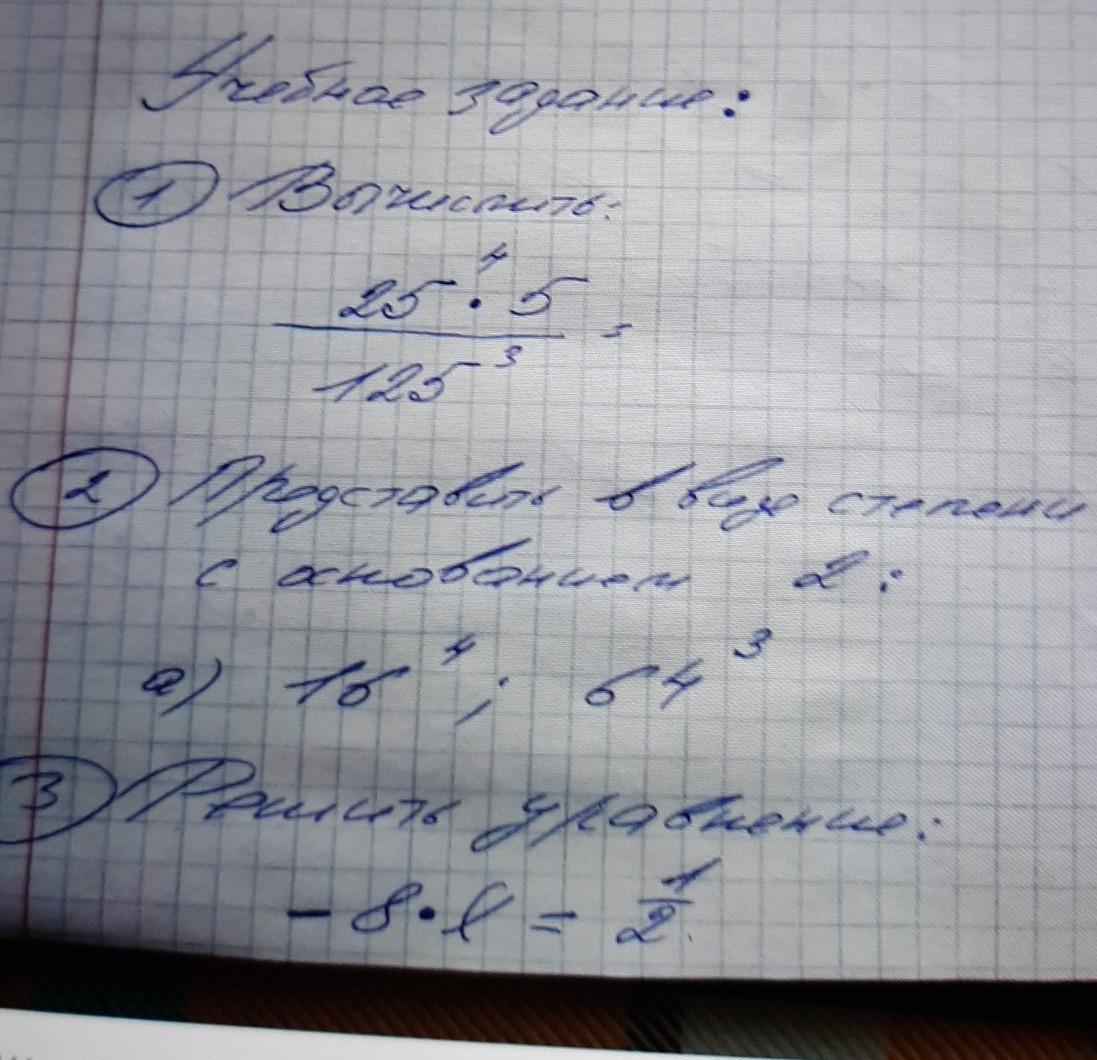 Учебное задание:
1 Вычислить:
25⁴ · 5
125³ =
2 Представить в виде степени
с основанием 2:
а) 16⁴ ; 64³
3 Решить уравнение:
- 8 · x = 1/2.